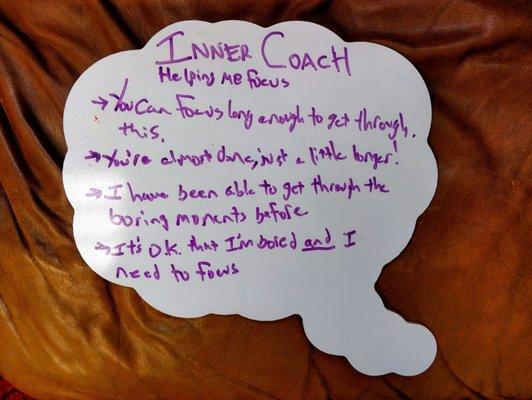 INNER COACH
Helping me focus
→ You can focus long enough to get through
this.
→ You're almost done, just a little longer!
→ I have been able to get through the
boring moments before
→ It's O.K. that I'm bored and I
need to focus